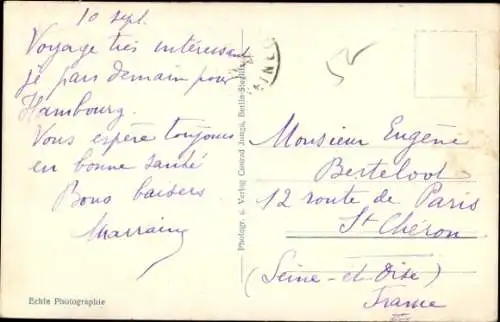 10 sept.
Voyage très intéressant
je pars demain pour
Hambourg.
Vous espère toujours
en bonne santé
Bons baisers
Marraine
Echte Photographie
Photogr. u. Verlag Conrad Junga, Berlin-Steglitz
Monsieur Eugène
Berteloot
12 route de Paris
St Chéron
(Seine-et-Oise)
France